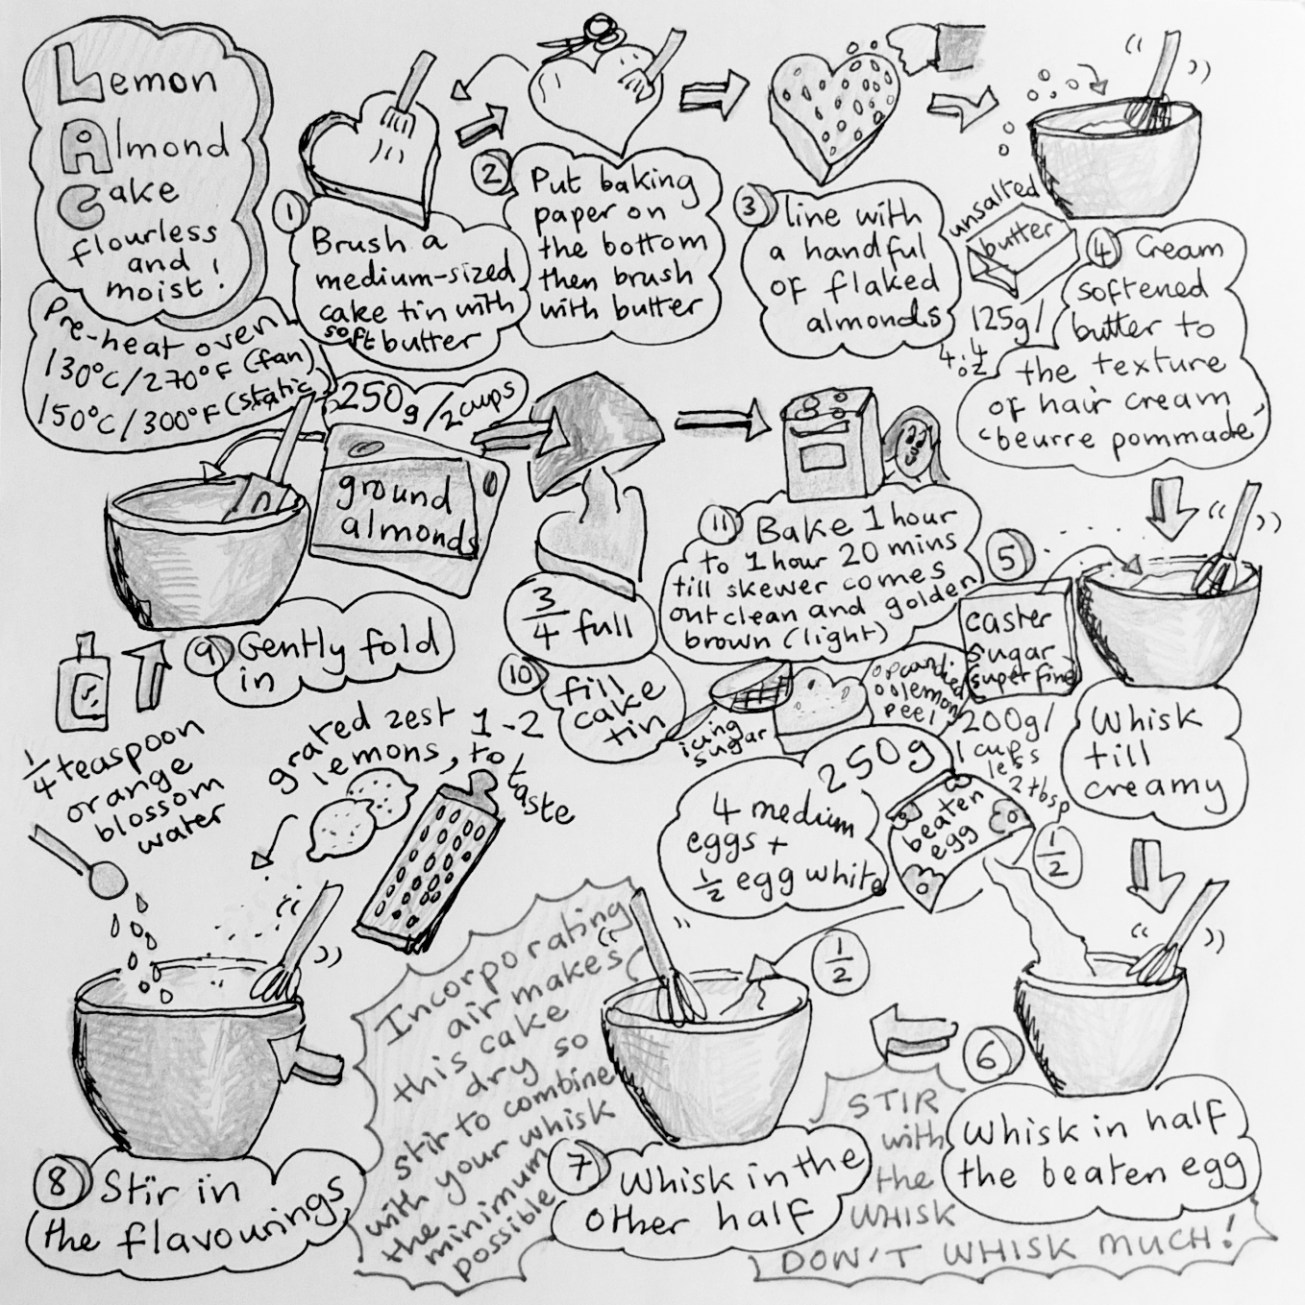 Lemon
Almond
Cake
flourless
and
moist!
Pre-heat oven
130°C/270°F (fan)
150°C/300°F (static)
1
Brush a
medium-sized
cake tin with
soft butter
2
Put baking
paper on
the bottom
then brush
with butter
3
line with
a handful
of flaked
almonds
unsalted
butter
125g/
4.4
oz
4 Cream
softened
butter to
the texture
of hair cream
'beurre pommade'
5
caster
sugar
superfine
200g/
1 cup
less
2 tbsp
Whisk
till
creamy
250g
4 medium
eggs +
1/2 egg white
beaten
egg
1/2
6
Whisk in half
the beaten egg
STIR
with
the
WHISK
DON'T WHISK MUCH!
1/2
7
Whisk in the
other half
Incorporating
air makes
this cake
dry so
stir to combine
with your whisk
the minimum
possible
grated zest 1-2
lemons, to
taste
1/4 teaspoon
orange
blossom
water
8 Stir in
the flavourings
250g/2 cups
ground
almonds
9 Gently fold
in
3/4 full
10
fill
cake
tin
11 Bake 1 hour
to 1 hour 20 mins
till skewer comes
out clean and golden
brown (light)
icing
sugar
or candied
lemon
peel